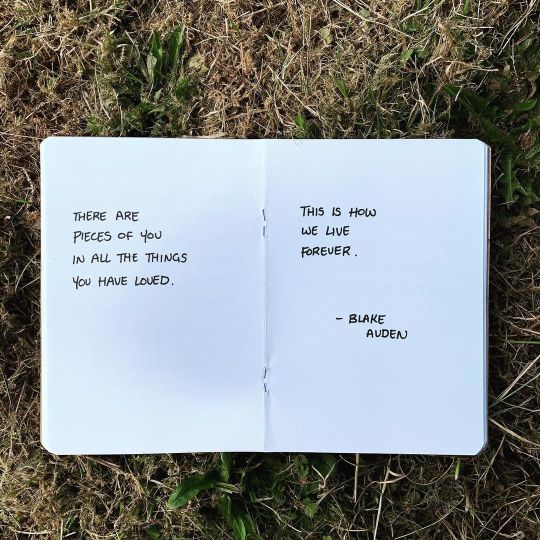 THERE ARE
PIECES OF YOU
IN ALL THE THINGS
YOU HAVE LOVED.
THIS IS HOW
WE LIVE
FOREVER.
- BLAKE
AUDEN